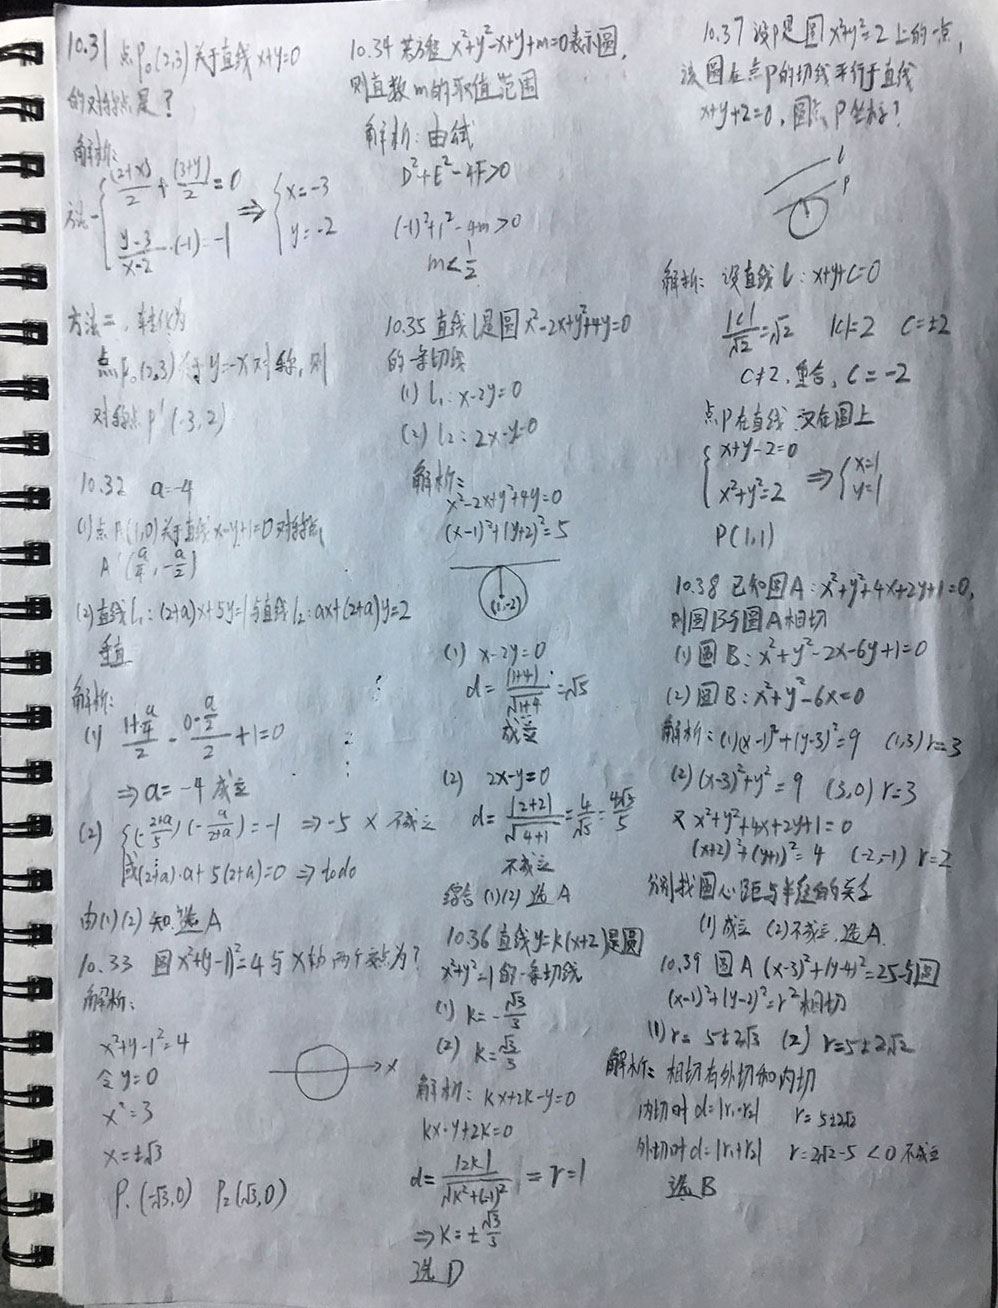 10.31 点P₀(2,3)关于直线x+y=0
的对称点是?
解析:
法一 { (2+x)/2 + (3+y)/2 = 0
(y-3)/(x-2)·(-1) = -1
⇒ { x=-3
y=-2
方法二,转化为
点P₀(2,3)于y=-x对称,则
对称点P'(-3,2)
10.32 a=-4
(1)点A(1,0)关于直线x-y+1=0对称点
A'(a/4, -a/2)
(2)直线l₁:(2+a)x+5y=1与直线l₂:ax+(2+a)y=2
垂直
解析:
(1) (1+a/4)/2 - (0-a/2)/2 + 1 = 0
⇒ a=-4 成立
(2) { (-(2+a)/5)(-a/(2+a)) = -1 ⇒ -5 × 不成立
或(2+a)·a+5(2+a)=0 ⇒ todo
由(1)(2)知,选A
10.33 圆x²+(y-1)²=4与x轴两个交点为?
解析:
x²+y-1²=4
令y=0
x²=3
x=±√3
P₁(-√3,0) P₂(√3,0)
x
10.34 若方程x²+y²-x+y+m=0表示圆,
则直数m的取值范围
解析:由
D²+E²-4F>0
(-1)²+1²-4m>0
m<1/2
10.35 直线l是圆x²-2x+y²+4y=0
的一条切线
(1) l₁:x-2y=0
(2) l₂:2x-y=0
解析:
x²-2x+y²+4y=0
(x-1)²+(y+2)²=5
(1,-2)
(1) x-2y=0
d=|1+4|/√(1+4)=√5
成立
(2) 2x-y=0
d=|2+2|/√(4+1)=4/√5=4√5/5
不成立
综合(1)(2)选A
10.36 直线y=k(x+2)是圆
x²+y²=1的一条切线
(1) k=-√3/3
(2) k=√3/3
解析:kx+2k-y=0
kx-y+2k=0
d=|2k|/√(k²+(-1)²)=r=1
⇒k=±√3/3
选D
10.37 设P是圆x²+y²=2上的一点,
该圆在点P的切线平行于直线
x+y+2=0,圆点P坐标?
l
P
解析:设直线l:x+y+c=0
|c|/√2=√2 |c|=2 c=±2
c≠2,重合,c=-2
点P在直线 又在圆上
{ x+y-2=0
x²+y²=2
⇒ { x=1
y=1
P(1,1)
10.38 已知圆A:x²+y²+4x+2y+1=0,
则圆B与圆A相切
(1)圆B:x²+y²-2x-6y+1=0
(2)圆B:x²+y²-6x=0
解析:(1)(x-1)²+(y-3)²=9 (1,3) r=3
(2)(x-3)²+y²=9 (3,0) r=3
又x²+y²+4x+2y+1=0
(x+2)²+(y+1)²=4 (-2,-1) r=2
分别找圆心距与半径的关系
(1)成立 (2)不成立,选A
10.39 圆A(x-3)²+(y-4)²=25与圆
(x-1)²+(y-2)²=r²相切
(1)r=5±2√3 (2) r=5±2√2
解析:相切有外切和内切
内切时d=|r₁-r₂| r=5±2√2
外切时d=|r₁+r₂| r=2√2-5<0 不成立
选B